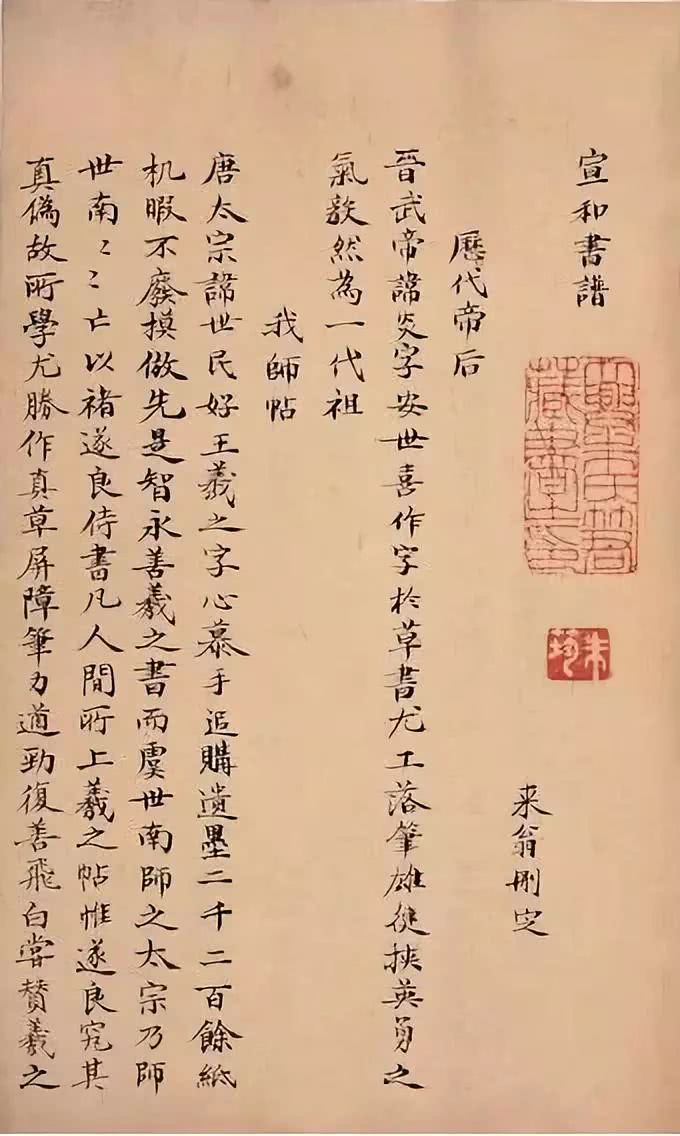 宣和書譜
来翁刪定
朱
歷代帝后
晉武帝諱炎字安世喜作字於草書尤工落筆雄健挾英勇之
氣毅然為一代祖
我師帖
唐太宗諱世民好王羲之字心慕手追購遺墨二千二百餘紙
机暇不廢摸倣先是智永善羲之書而虞世南師之太宗乃師
世南〻〻亡以褚遂良侍書凡人間所上羲之帖惟遂良究其
真偽故所學尤勝作真草屏障筆力遒勁復善飛白嘗賛羲之